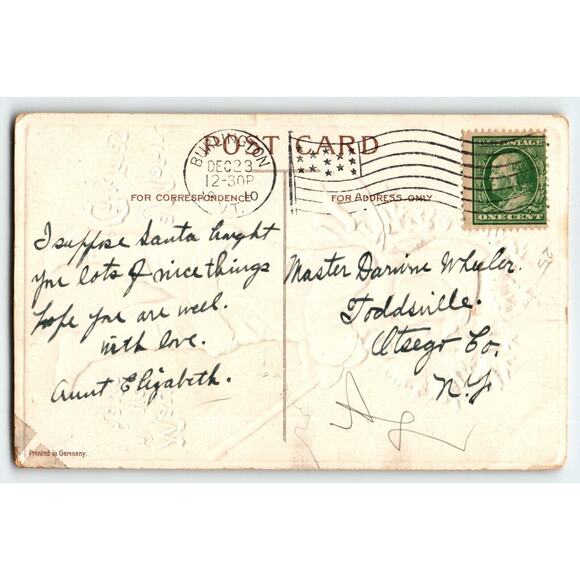 POST CARD
BURLINGTON
DEC 23
12-30P
1910
VT.
FOR CORRESPONDENCE
FOR ADDRESS ONLY
ONE CENT
I suppose Santa brought
you lots of nice things
hope you are well.
with love.
Aunt Elizabeth.
Master Darwin Wheeler.
Toddsville.
Otsego Co.
N.Y.
Printed in Germany.